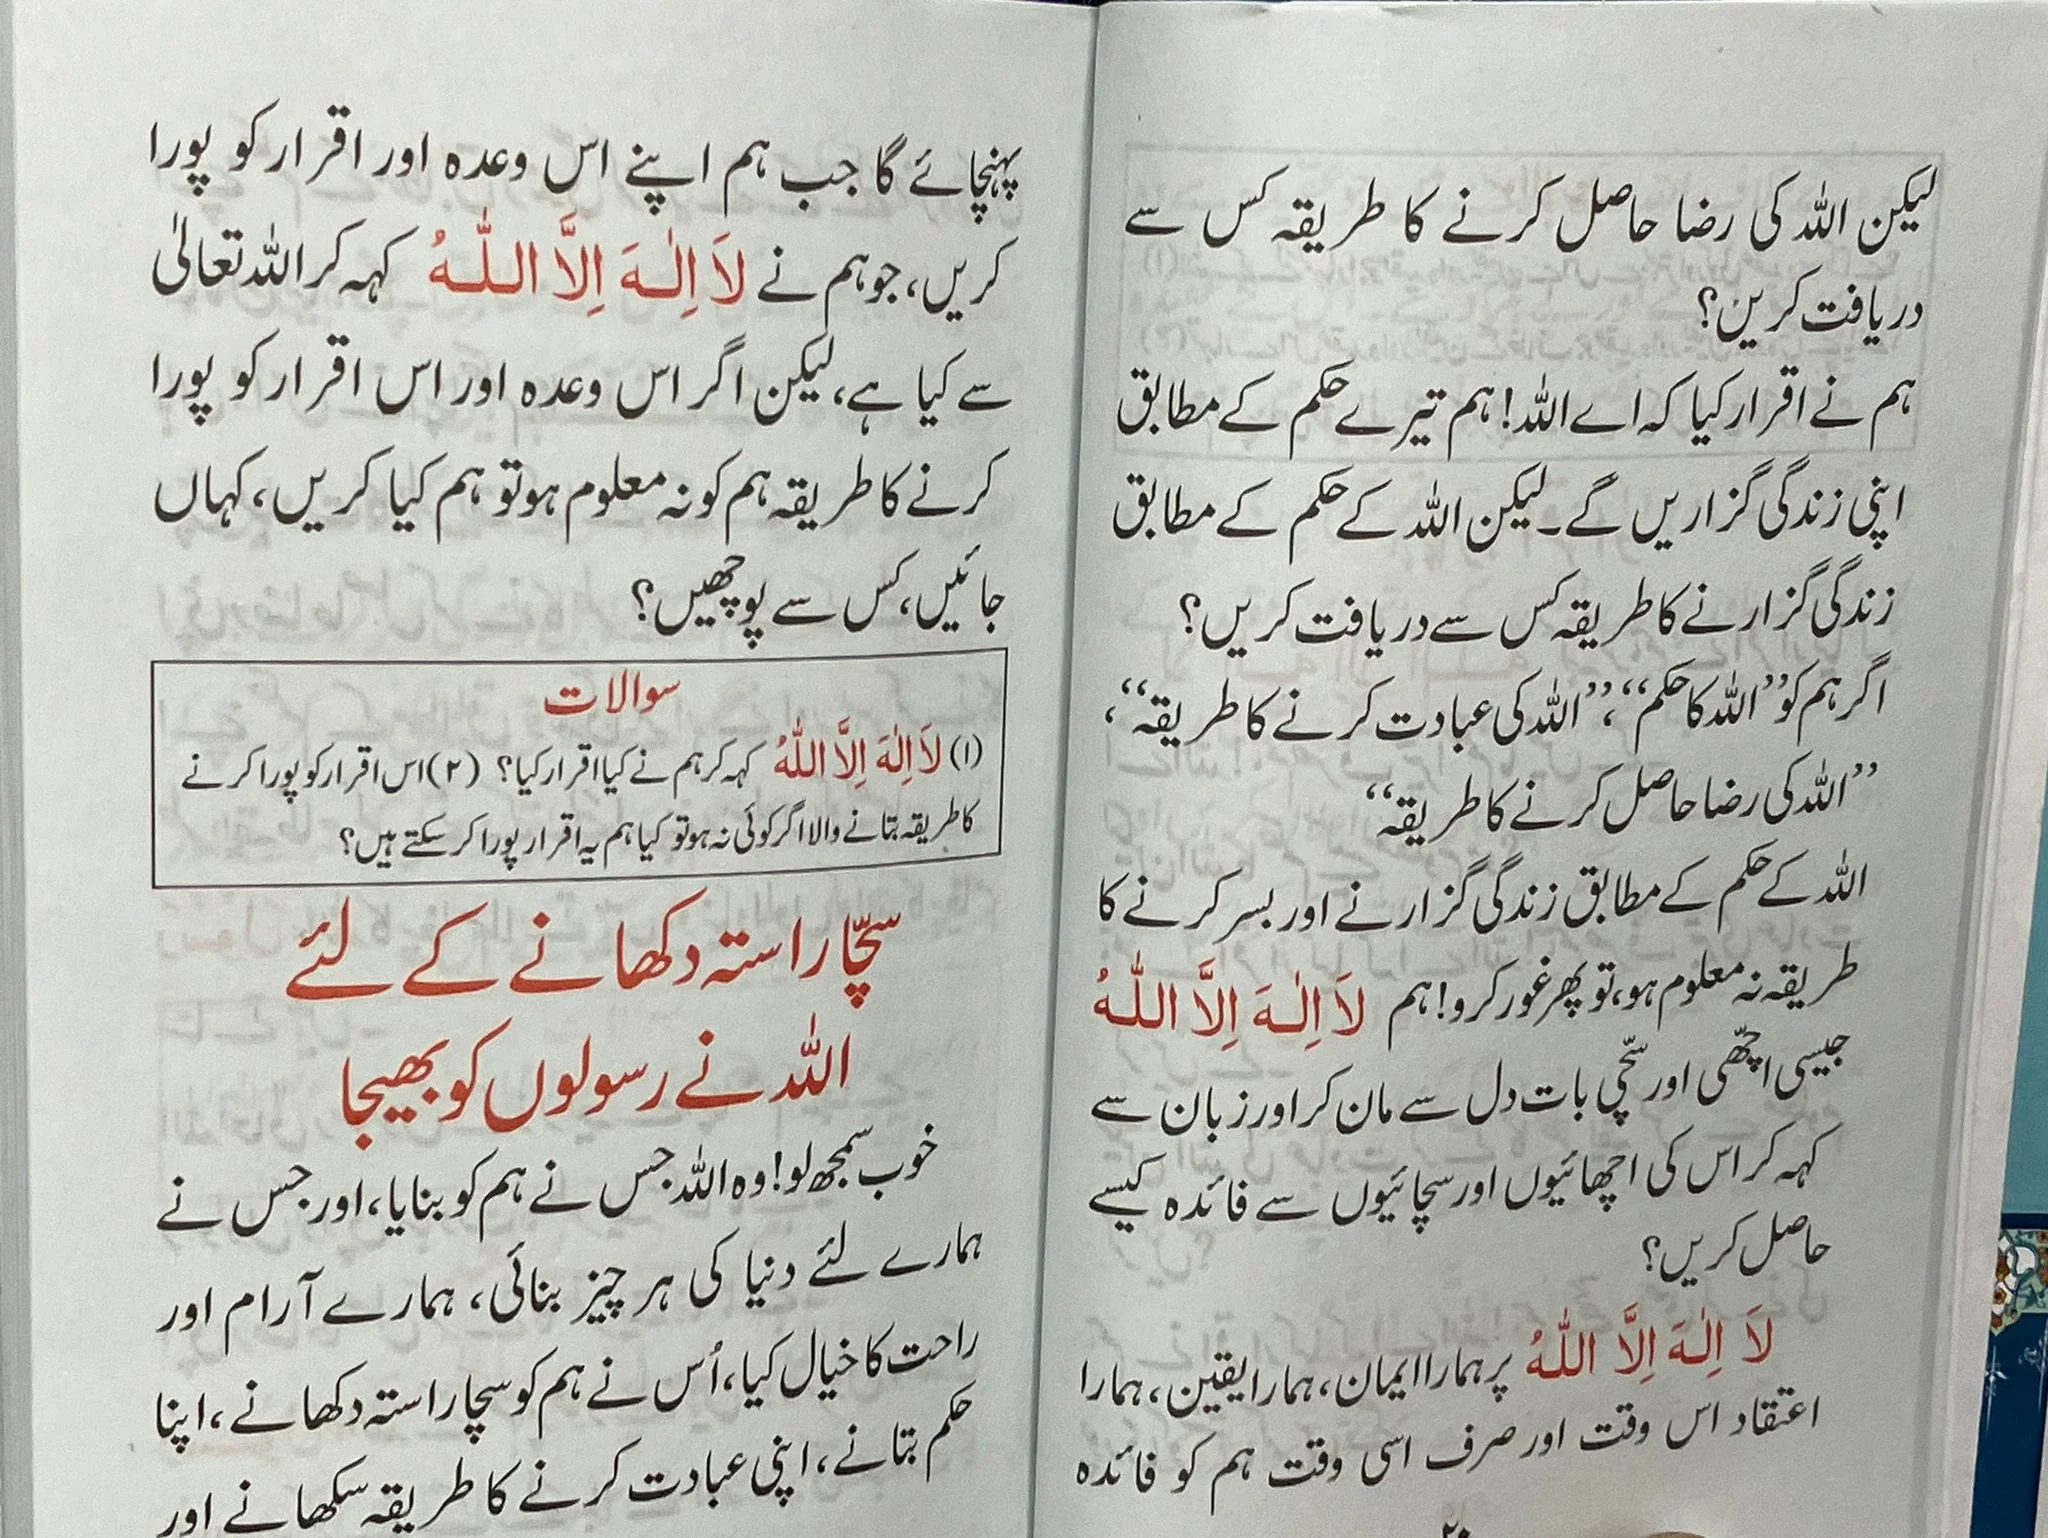 لیکن اللہ کی رضا حاصل کرنے کا طریقہ کس سے
دریافت کریں؟
ہم نے اقرار کیا کہ اے اللہ! ہم تیرے حکم کے مطابق
اپنی زندگی گزاریں گے۔ لیکن اللہ کے حکم کے مطابق
زندگی گزارنے کا طریقہ کس سے دریافت کریں؟
اگر ہم کو ”اللہ کا حکم“، ”اللہ کی عبادت کرنے کا طریقہ“،
”اللہ کی رضا حاصل کرنے کا طریقہ“
اللہ کے حکم کے مطابق زندگی گزارنے اور بسر کرنے کا
طریقہ نہ معلوم ہو، تو پھر غور کرو! ہم لَا اِلٰهَ اِلَّا اللّٰهُ
جیسی اچھّی اور سچّی بات دل سے مان کر اور زبان سے
کہہ کر اس کی اچھائیوں اور سچائیوں سے فائدہ کیسے
حاصل کریں؟
لَا اِلٰهَ اِلَّا اللّٰهُ پر ہمارا ایمان، ہمارا یقین، ہمارا
اعتقاد اس وقت اور صرف اسی وقت ہم کو فائدہ
۲۰
پہنچائے گا جب ہم اپنے اس وعدہ اور اقرار کو پورا
کریں، جو ہم نے لَا اِلٰهَ اِلَّا اللّٰهُ کہہ کر اللہ تعالیٰ
سے کیا ہے، لیکن اگر اس وعدہ اور اس اقرار کو پورا
کرنے کا طریقہ ہم کو نہ معلوم ہو تو ہم کیا کریں، کہاں
جائیں، کس سے پوچھیں؟
سوالات
(۱) لَا اِلٰهَ اِلَّا اللّٰهُ کہہ کر ہم نے کیا اقرار کیا؟ (۲) اس اقرار کو پورا کرنے
کا طریقہ بتانے والا اگر کوئی نہ ہو تو کیا ہم یہ اقرار پورا کر سکتے ہیں؟
سچّا راستہ دکھانے کے لئے
اللہ نے رسولوں کو بھیجا
خوب سمجھ لو! وہ اللہ جس نے ہم کو بنایا، اور جس نے
ہمارے لئے دنیا کی ہر چیز بنائی، ہمارے آرام اور
راحت کا خیال کیا، اُس نے ہم کو سچا راستہ دکھانے، اپنا
حکم بتانے، اپنی عبادت کرنے کا طریقہ سکھانے اور